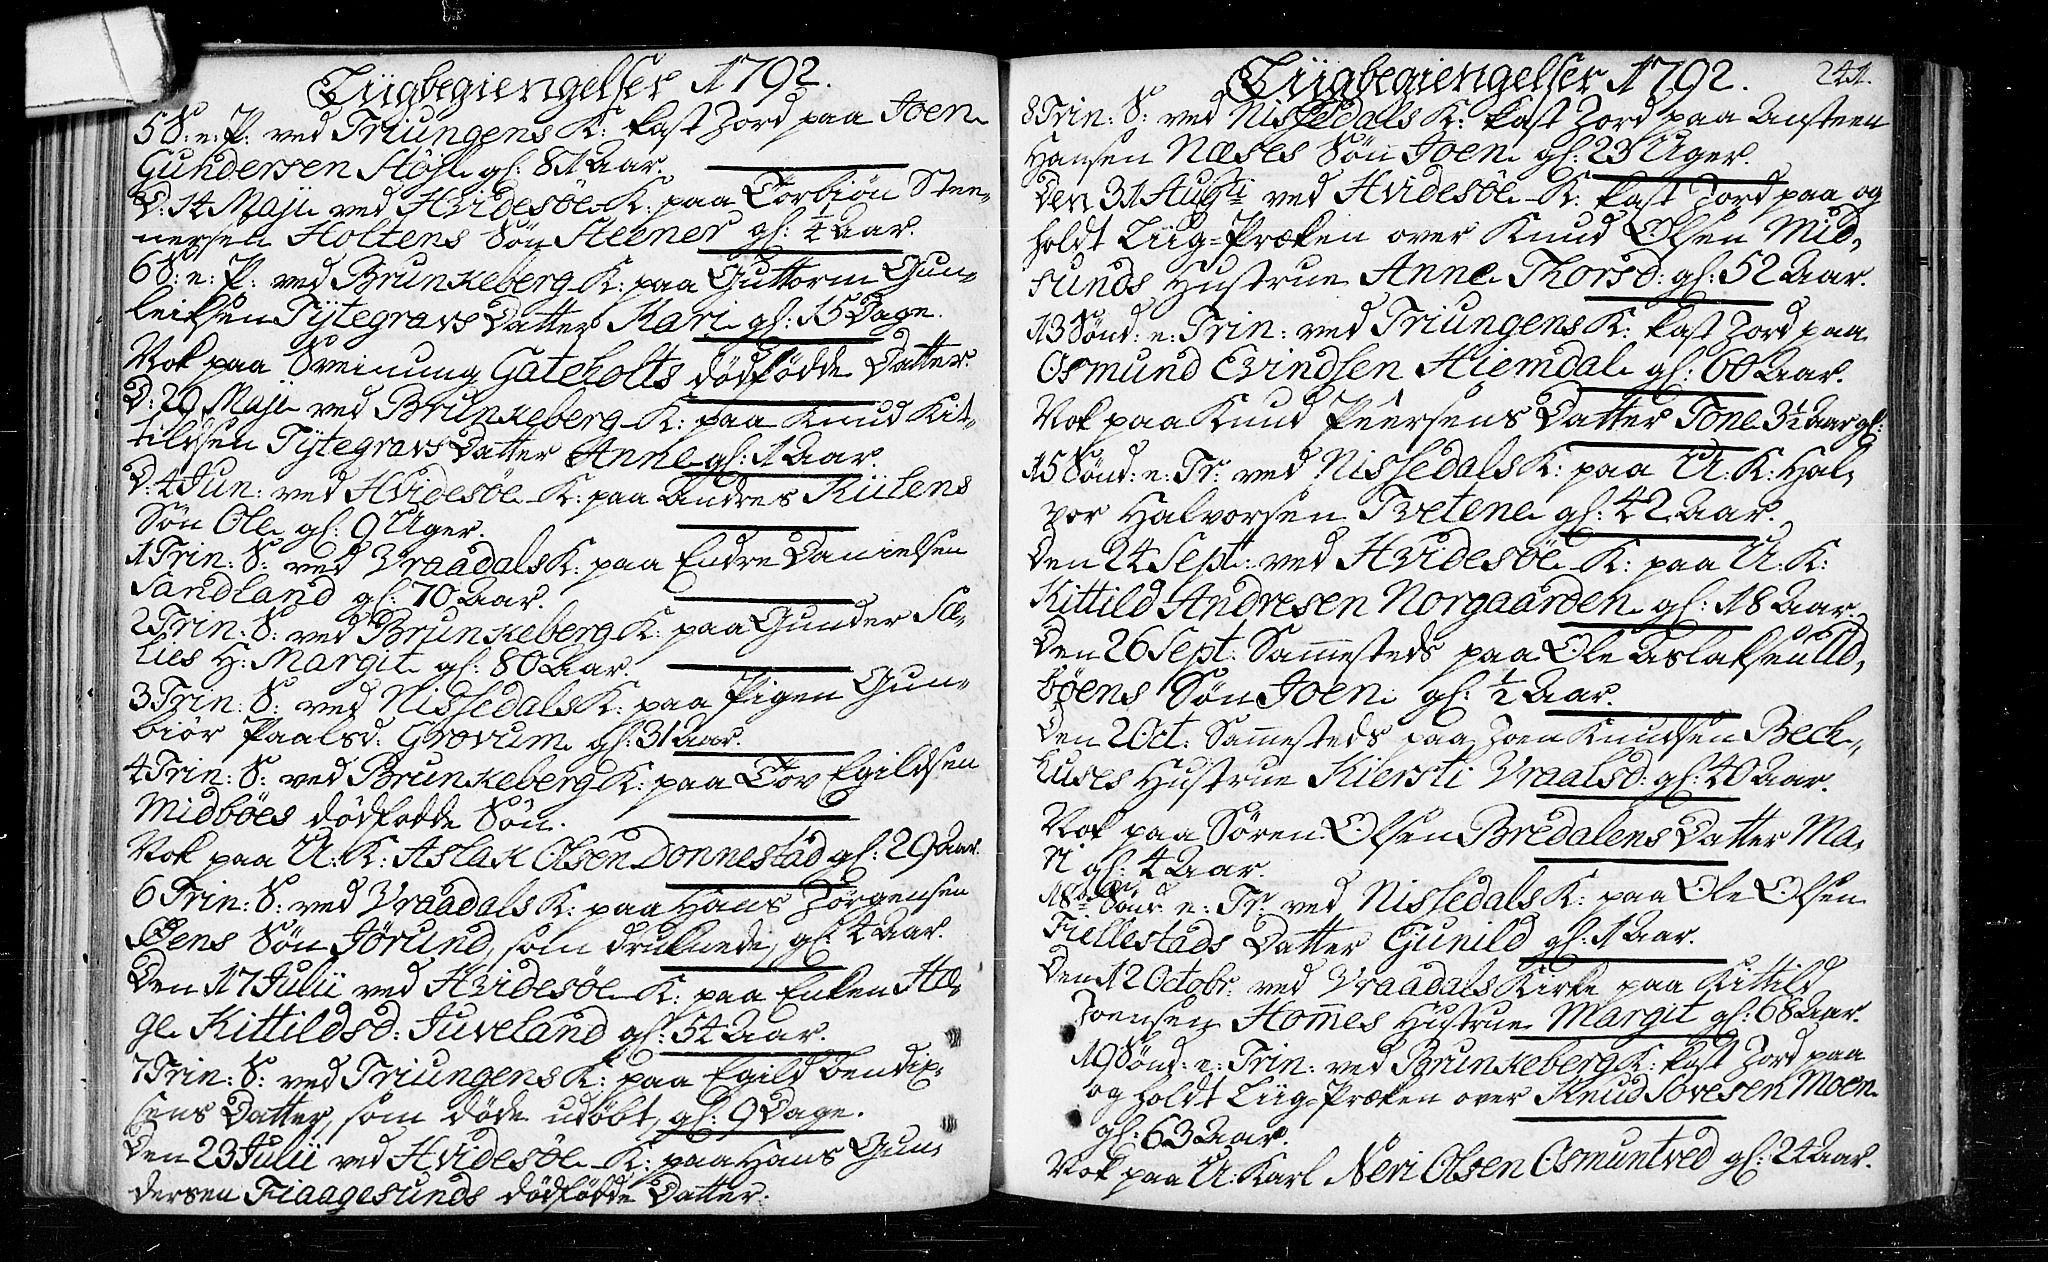 Liigbegiengelser 1792.
5 S: e: P: ved Triungens K: kast Jord paa Joen
Gundersen Höhl. gl: 81 Aar.
D: 14 Maji ved Hvidesöe K: paa Torbiön Stee-
nersen Holtens Sön Steener gl: 1/4 Aar.
6 S: e: P: ved Brunkeberg K: paa Guttorm Gun-
leiksen Tÿtegravs Datter Kari gl: 15 Dage.
Nok paa Sveinung Gateholts dödfödde Datter.
D: 29 Maji ved Brunkeberg K: paa Knud Kit-
tildsen Tÿtegravs Datter Anne gl: 1 Aar.
D: 4 Jun: ved Hvidesöe K: paa Andres Kiilens
Sön Ole gl: 9 Uger.
1 Trin: S: ved Vraadals K: paa Endre Danielsen
Sandland gl: 70 Aar.
2 Trin: S: ved Brunkeberg K: paa Gunder
lies H: Margit gl: 80 Aar.
3 Trin: S: ved Nissedals K: paa Pigen Gun-
biör Paalsd: Grovum gl: 31 Aar.
4 Trin: S: ved Brunkeberg K: paa Tov Egildsen
Midböes dödfödde Sön.
Nok paa U: K: Aslak Olsen Donnestad gl: 29 Aar.
6 Trin: S: ved Vraadals K: paa Hans Jörgensen
Öens Sön Jörund, som druknede, gl: 4 Aar.
Den 17 Julii ved Hvidesöe K: paa Enken Hæ-
ge Kittildsd: Juveland gl: 54 Aar.
7 Trin: S: ved Triungens K: paa Egild Bendix-
sens Datter, som döde udöbt, gl: 9 Dage.
Den 23 Julii ved Hvidesöe K: paa Hans Gun-
dersen Fiaagesunds dödfödde Datter.
Liigbegiengelser 1792. 241.
8 Trin: S: ved Nissedals K: kast Jord paa Ansteen
Hansen Næses Sön Joen gl: 23 Uger.
Den 31 Augti ved Hvidesöe K: kast Jord paa og
holdt Liig-Præken over Knud Olsen Mid-
sunds Hustrue Anne Thorsd: gl: 52 Aar.
13 Sönd: e: Trin: ved Triungens K: kast Jord paa
Osmund Evindsen Hiemdal gl: 60 Aar.
Nok paa Knud Peersens Datter Tone 3 1/2 Aar gl:
15 Sönd: e: Tr: ved Nissedals K: paa U: K: Hal-
vor Halvorsen Tvetene gl: 42 Aar.
Den 24 Sept: ved Hvidesöe K: paa U: K:
Kittild Andresen Norgaarden gl: 18 Aar.
Den 26 Sept: Sammesteds paa Ole Aslaksen Ud-
böens Sön Joen gl: 1/2 Aar.
Den 2 Oct: Sammesteds paa Joen Knudsen Beck-
huses Hustrue Kiersti Vraalsd: gl: 40 Aar.
Nok paa Sören Olsen Bredalens Datter Ma-
ri gl: 4 Aar.
18de Sönd: e: Tr: ved Nissedals K: paa Ole Olsen
Fiellestads Datter Gunild gl: 1 Aar.
Den 12 Octobr: ved Vraadals Kirke paa Kittild
Joensen Hommes Hustrue Margit gl: 68 Aar.
19 Sönd: e: Trin: ved Brunkeberg K: kast Jord paa
og holdt Liig-Præken over Knud Sovesen Moen
gl: 63 Aar.
Nok paa U: Karl Neri Olsen Osmuntved gl: 24 Aar.